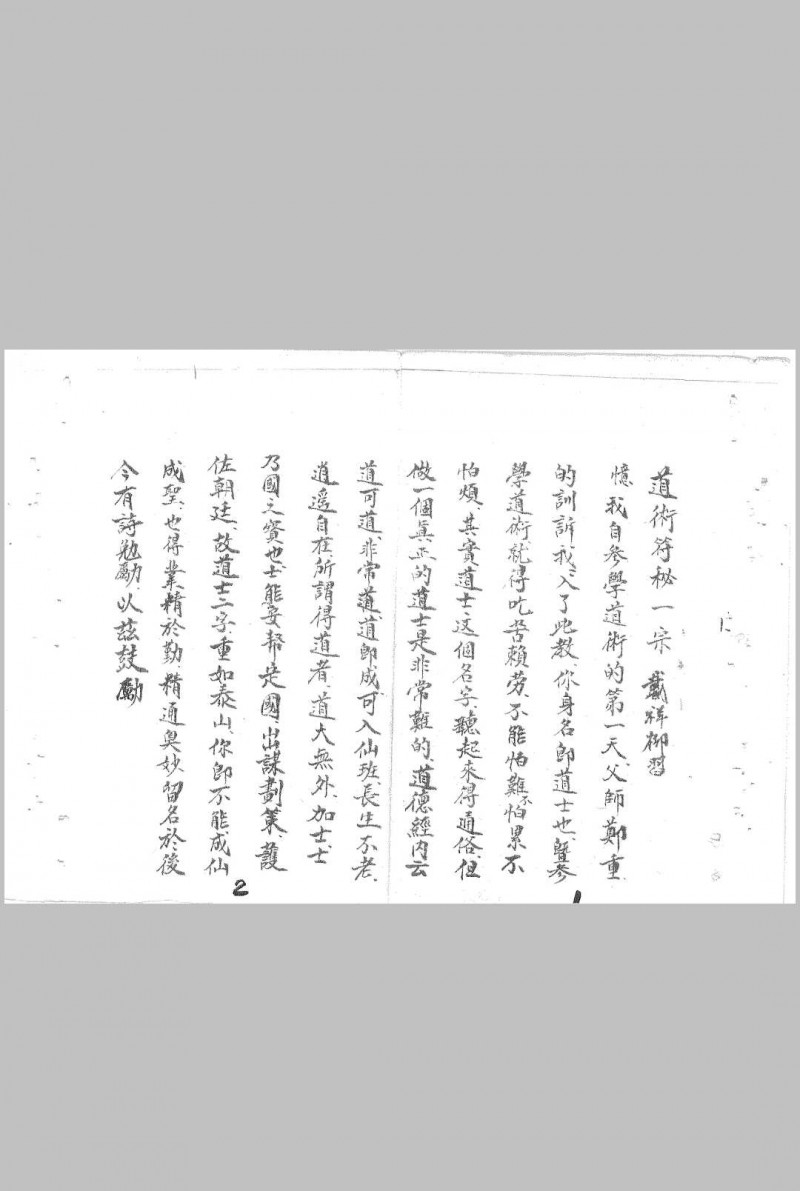 道術符秘一宗 戴祥柳習
憶我自參學道術的第一天、父師鄭重
的訓訴我、入了此教、你身名即道士也、暨參
學道術就得吃苦賴劳、不能怕難不怕累不
怕煩、其實道士这個名字、聽起來得通俗、但
做一個真正的道士是非常難的、道德經內云
道可道、非常道、道即成、可入仙班、長生不老、
逍遥自在、所謂得道者、道大無外、加士、士
乃國之寳也、士能安幇定國、出謀劃策、護
佐朝廷、故道士二字重如泰山、你即不能成仙
成聖、也得業精於勤、精通奥妙留名於後
今有詩勉勵、以茲鼓勵
1
2